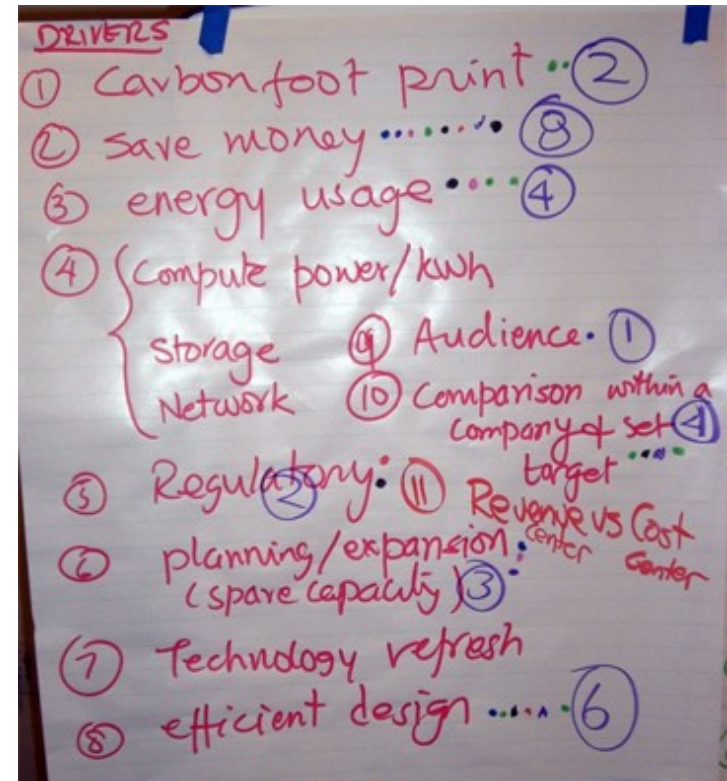 DRIVERS
① Carbon foot print ②
② save money ⑧
③ energy usage ④
④ Compute power/kwh
Storage
Network
⑨ Audience. ①
⑩ Comparison within a
company & set ④
target
⑤ Regulatory ②
⑪ Revenue vs Cost
Center Center
⑥ planning/expansion
(spare capacity) ③
⑦ Technology refresh
⑧ efficient design ⑥